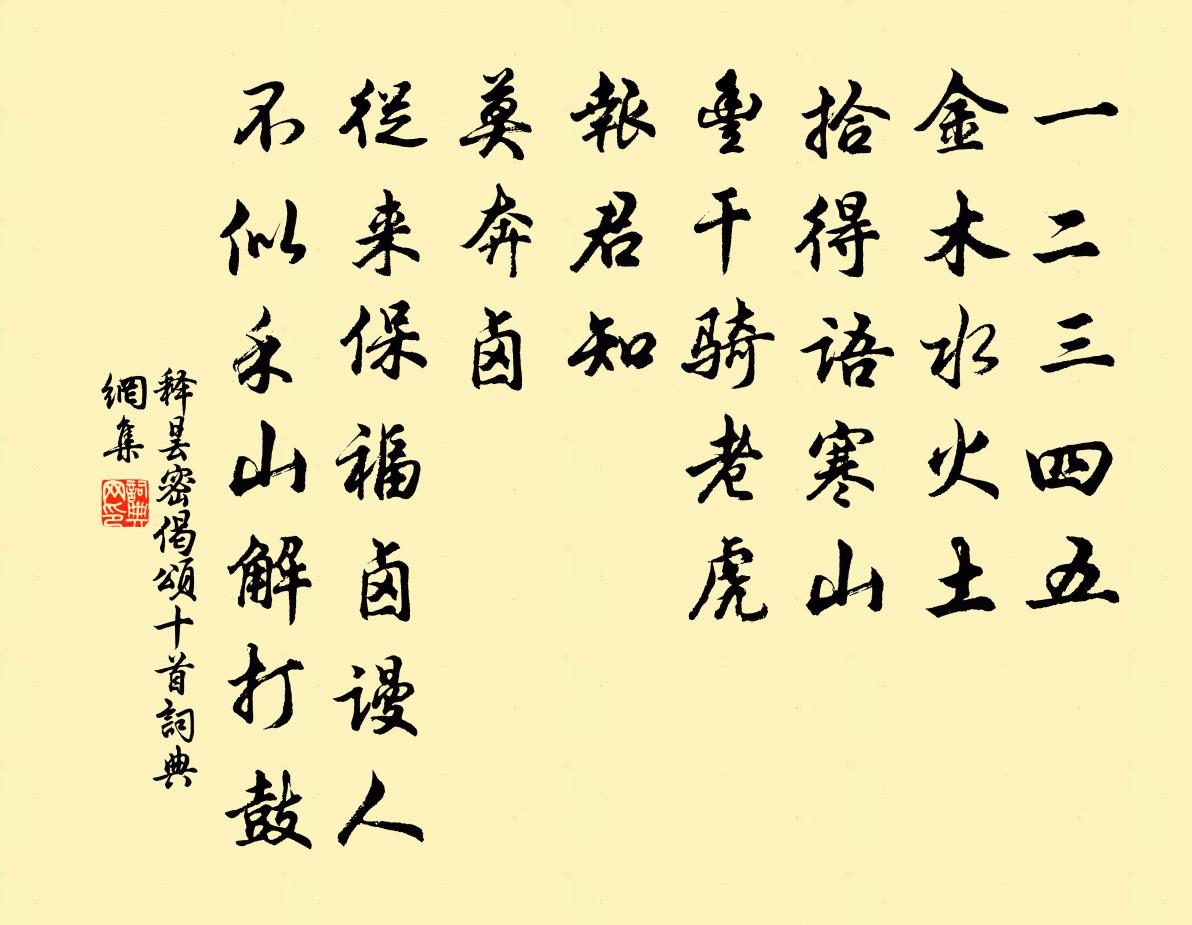 一二三四五
金木水火土
拾得語寒山
豊干骑老虎
報君知
莫奔卤
從来保福卤謾人
不似禾山解打鼓
释昙密偈頌十首詞典
網集
詞典
网印